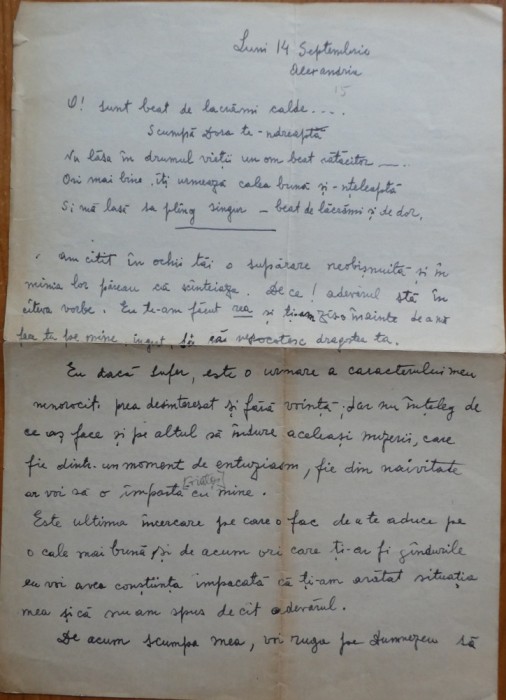 Luni 14 Septembrio
Alexandria
15
O! sunt beat de lacrămi calde....
Scumpă Dora te-ndreaptă
Nu lăsa în drumul vieții un om beat rătăcitor
Ori mai bine, îți urmează calea bună și-nțeleaptă
Și mă lasă să plîng singur – beat de lăcrămi și de dor.
Am citit în ochii tăi o supărare neobișnuită și în
minia lor păreau că scînteiază. De ce! adevărul stă în
cîteva vorbe. Eu te-am făcut rea și ți-am zis-o înainte de a
face tu pe mine, că nesocotesc dragostea ta.
Eu dacă sufer, este o urmare a caracterului meu
nenorocit, prea desinteresat și fără voință, dar nu înțeleg de
ce aș face și pe altul să îndure aceleași mizerii, care
fie dintr-un moment de entuziasm, fie din naivitate
ar voi să o împartă cu mine.
Este ultima încercare pe care o fac de a te aduce pe
o cale mai bună, și de acum ori care ți-ar fi gîndurile
eu voi avea conștiința împacată că ți-am arătat situația
mea și că nu am spus decît adevărul.
De acum scumpa mea, voi ruga pe Dumnezeu să